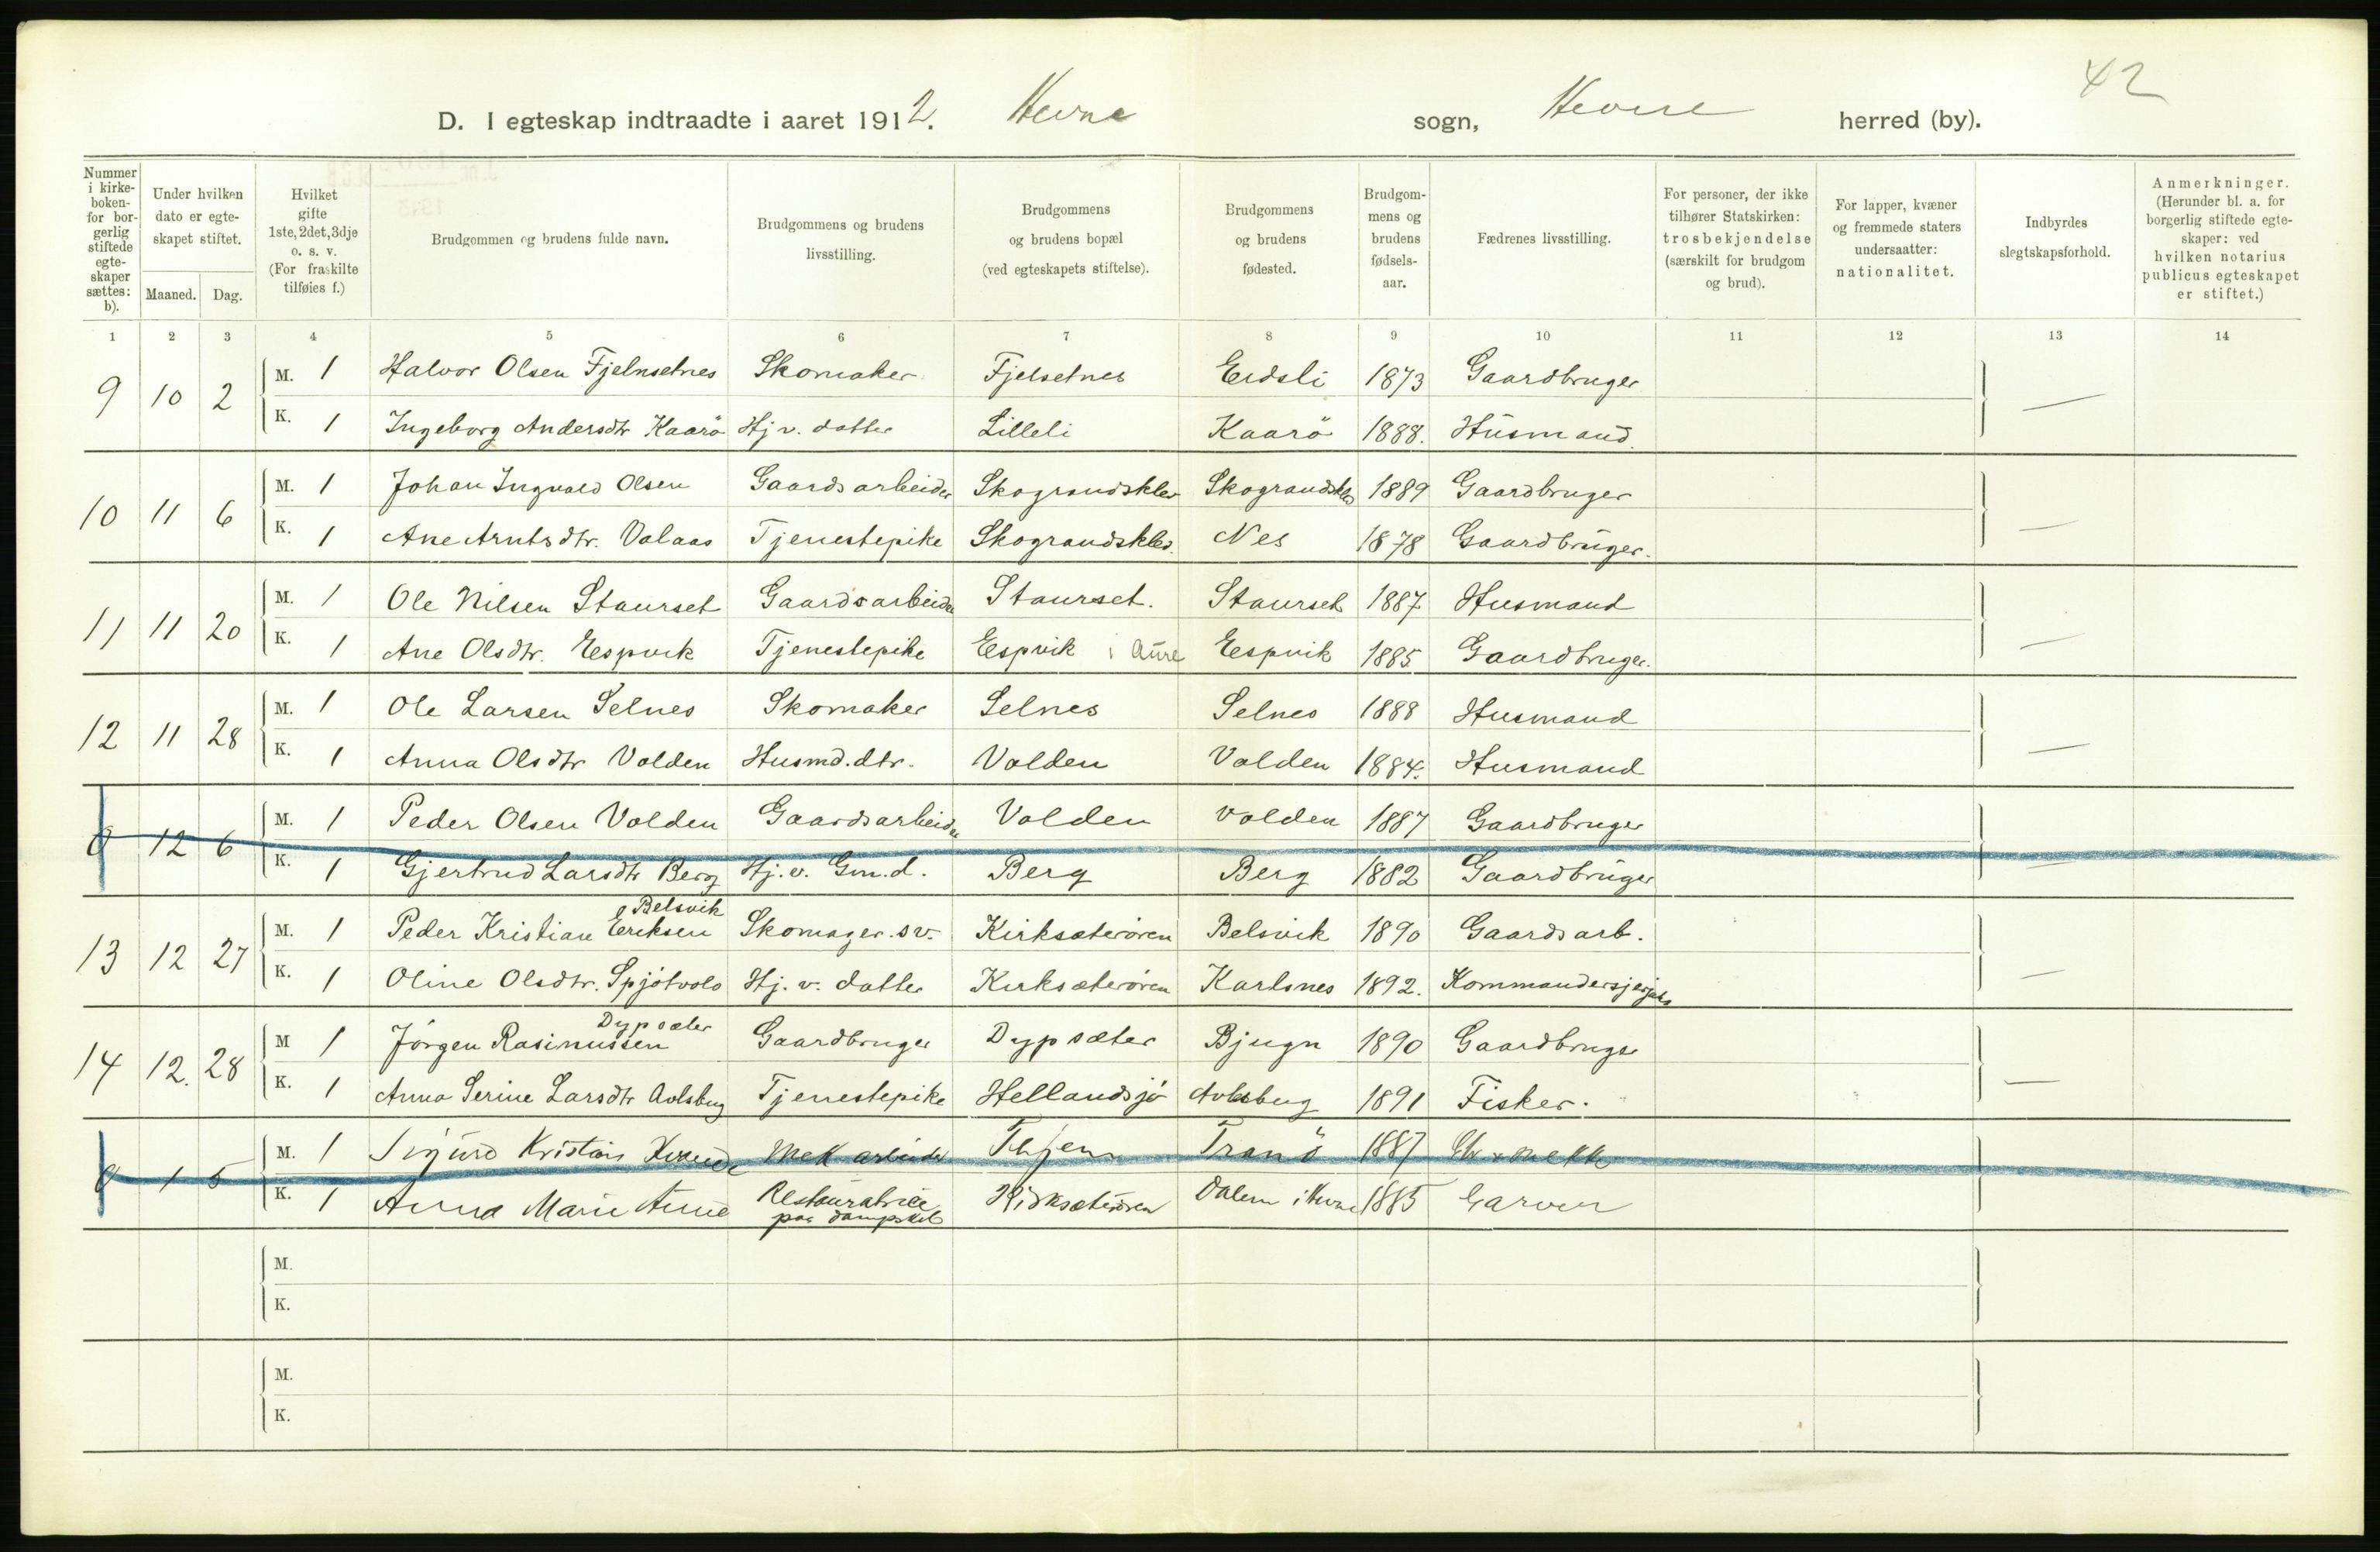 42
D. I egteskap indtraadte i aaret 1912. Hevne sogn, Hevne herred (by).
Nummer i kirkeboken- for borgerlig stiftede egteskaper sættes: b).
Under hvilken dato er egteskapet stiftet.
Maaned. Dag.
Hvilket gifte 1ste, 2det, 3dje o. s. v. (For fraskilte tilføies f.)
Brudgommen og brudens fulde navn.
Brudgommens og brudens livsstilling.
Brudgommens og brudens bopæl (ved egteskapets stiftelse).
Brudgommens og brudens fødested.
Brudgommens og brudens fødselsaar.
Fædrenes livsstilling.
For personer, der ikke tilhører Statskirken: trosbekjendelse (særskilt for brudgom og brud).
For lapper, kvæner og fremmede staters undersaatter: nationalitet.
Indbyrdes slegtskapsforhold.
Anmerkninger. (Herunder bl. a. for borgerlig stiftede egteskaper: ved hvilken notarius publicus egteskapet er stiftet.)
1 2 3 4 5 6 7 8 9 10 11 12 13 14
9 10 2 M. 1 Halvor Olsen Fjelnsetnes Skomaker Fjelsetnes Eidsli 1873 Gaardbruger
K. 1 Ingeborg Andersdtr Kaarö Hj v. datter Lilleli Kaarö 1888. Husmand. —
10 11 6 M. 1 Johan Ingvald Olsen Gaardsarbeider Skograndsklev Skograndsklev 1889 Gaardbruger
K. 1 Ane Arntsdtr. Valaas Tjenestepike Skograndsklev. Nes 1878 Gaardbruger. —
11 11 20 M. 1 Ole Nilsen Staurset Gaardsarbeider Staurset. Staurset 1887 Husmand
K. 1 Ane Olsdtr. Espvik Tjenestepike Espvik i Aure Espvik 1885 Gaardbruger. —
12 11 28 M. 1 Ole Larsen Selnes Skomaker Selnes Selnes 1888 Husmand
K. 1 Anna Olsdtr Volden Husmd.dtr. Volden Volden 1884. Husmand —
0 12 6 M. 1 Peder Olsen Volden Gaardsarbeider Volden Volden 1887 Gaardbruger
K. 1 Gjertrud Larsdtr Berg Hj. v. Gm.d. Berg Berg 1882 Gaardbruger —
13 12 27 M. 1 Peder Kristian Eriksen Belsvik Skomager.sv. Kirksæterøren Belsvik 1890 Gaardsarb.
K. 1 Oline Olsdtr. Spjötvold Hj. v. datter Kirksæterøren Karlsnes 1892. —
14 12. 28 M 1 Jörgen Rasmussen Dypsæter Gaardbruger Dypsæter Bjugn 1890 Gaardbruger
K. 1 Anna Serine Larsdtr Avlsbug Tjenestepike Hellandsjö Avlsbug 1891 Fisker. —
0 1 5 M. 1 Sigurd Kristian Mek arbeider Tranö 1887
K. 1 Anna Marie Aune Restauratrice paa dampskib Kirksæterøren Dalem i Hevne 1885 Garver
M.
K.
M.
K.